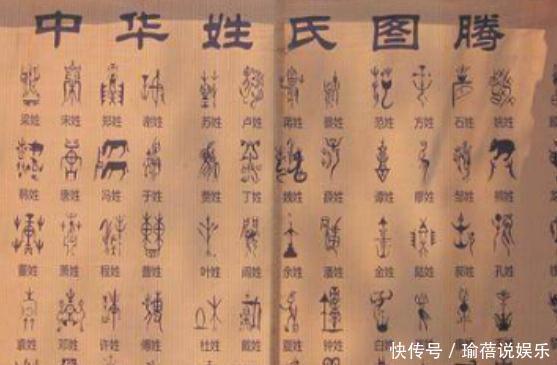 中华姓氏图腾
梁姓 宋姓 郑姓 谢姓 苏姓 卢姓 蒋姓 蔡姓 范姓 方姓 石姓 姚姓
韩姓 唐姓 冯姓 于姓 贾姓 丁姓 魏姓 薛姓 谭姓 廖姓 邹姓 熊姓
董姓 萧姓 程姓 曹姓 叶姓 阎姓 余姓 潘姓 金姓 陆姓 郝姓 孔姓
袁姓 邓姓 许姓 傅姓 杜姓 戴姓 夏姓 钟姓 白姓
快传号/瑜蓓说娱乐